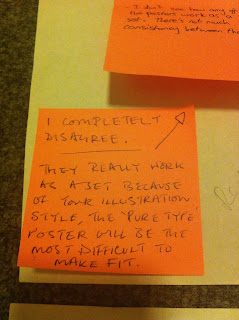 - I don't see how any of
the posters work as a
set. There's not much
consistency between the
I COMPLETELY
DISAGREE.
THEY REALLY WORK
AS A SET BECAUSE
OF YOUR ILLUSTRATION
STYLE, THE 'PURE TYPE'
POSTER WILL BE THE
MOST DIFFICULT TO
MAKE FIT.